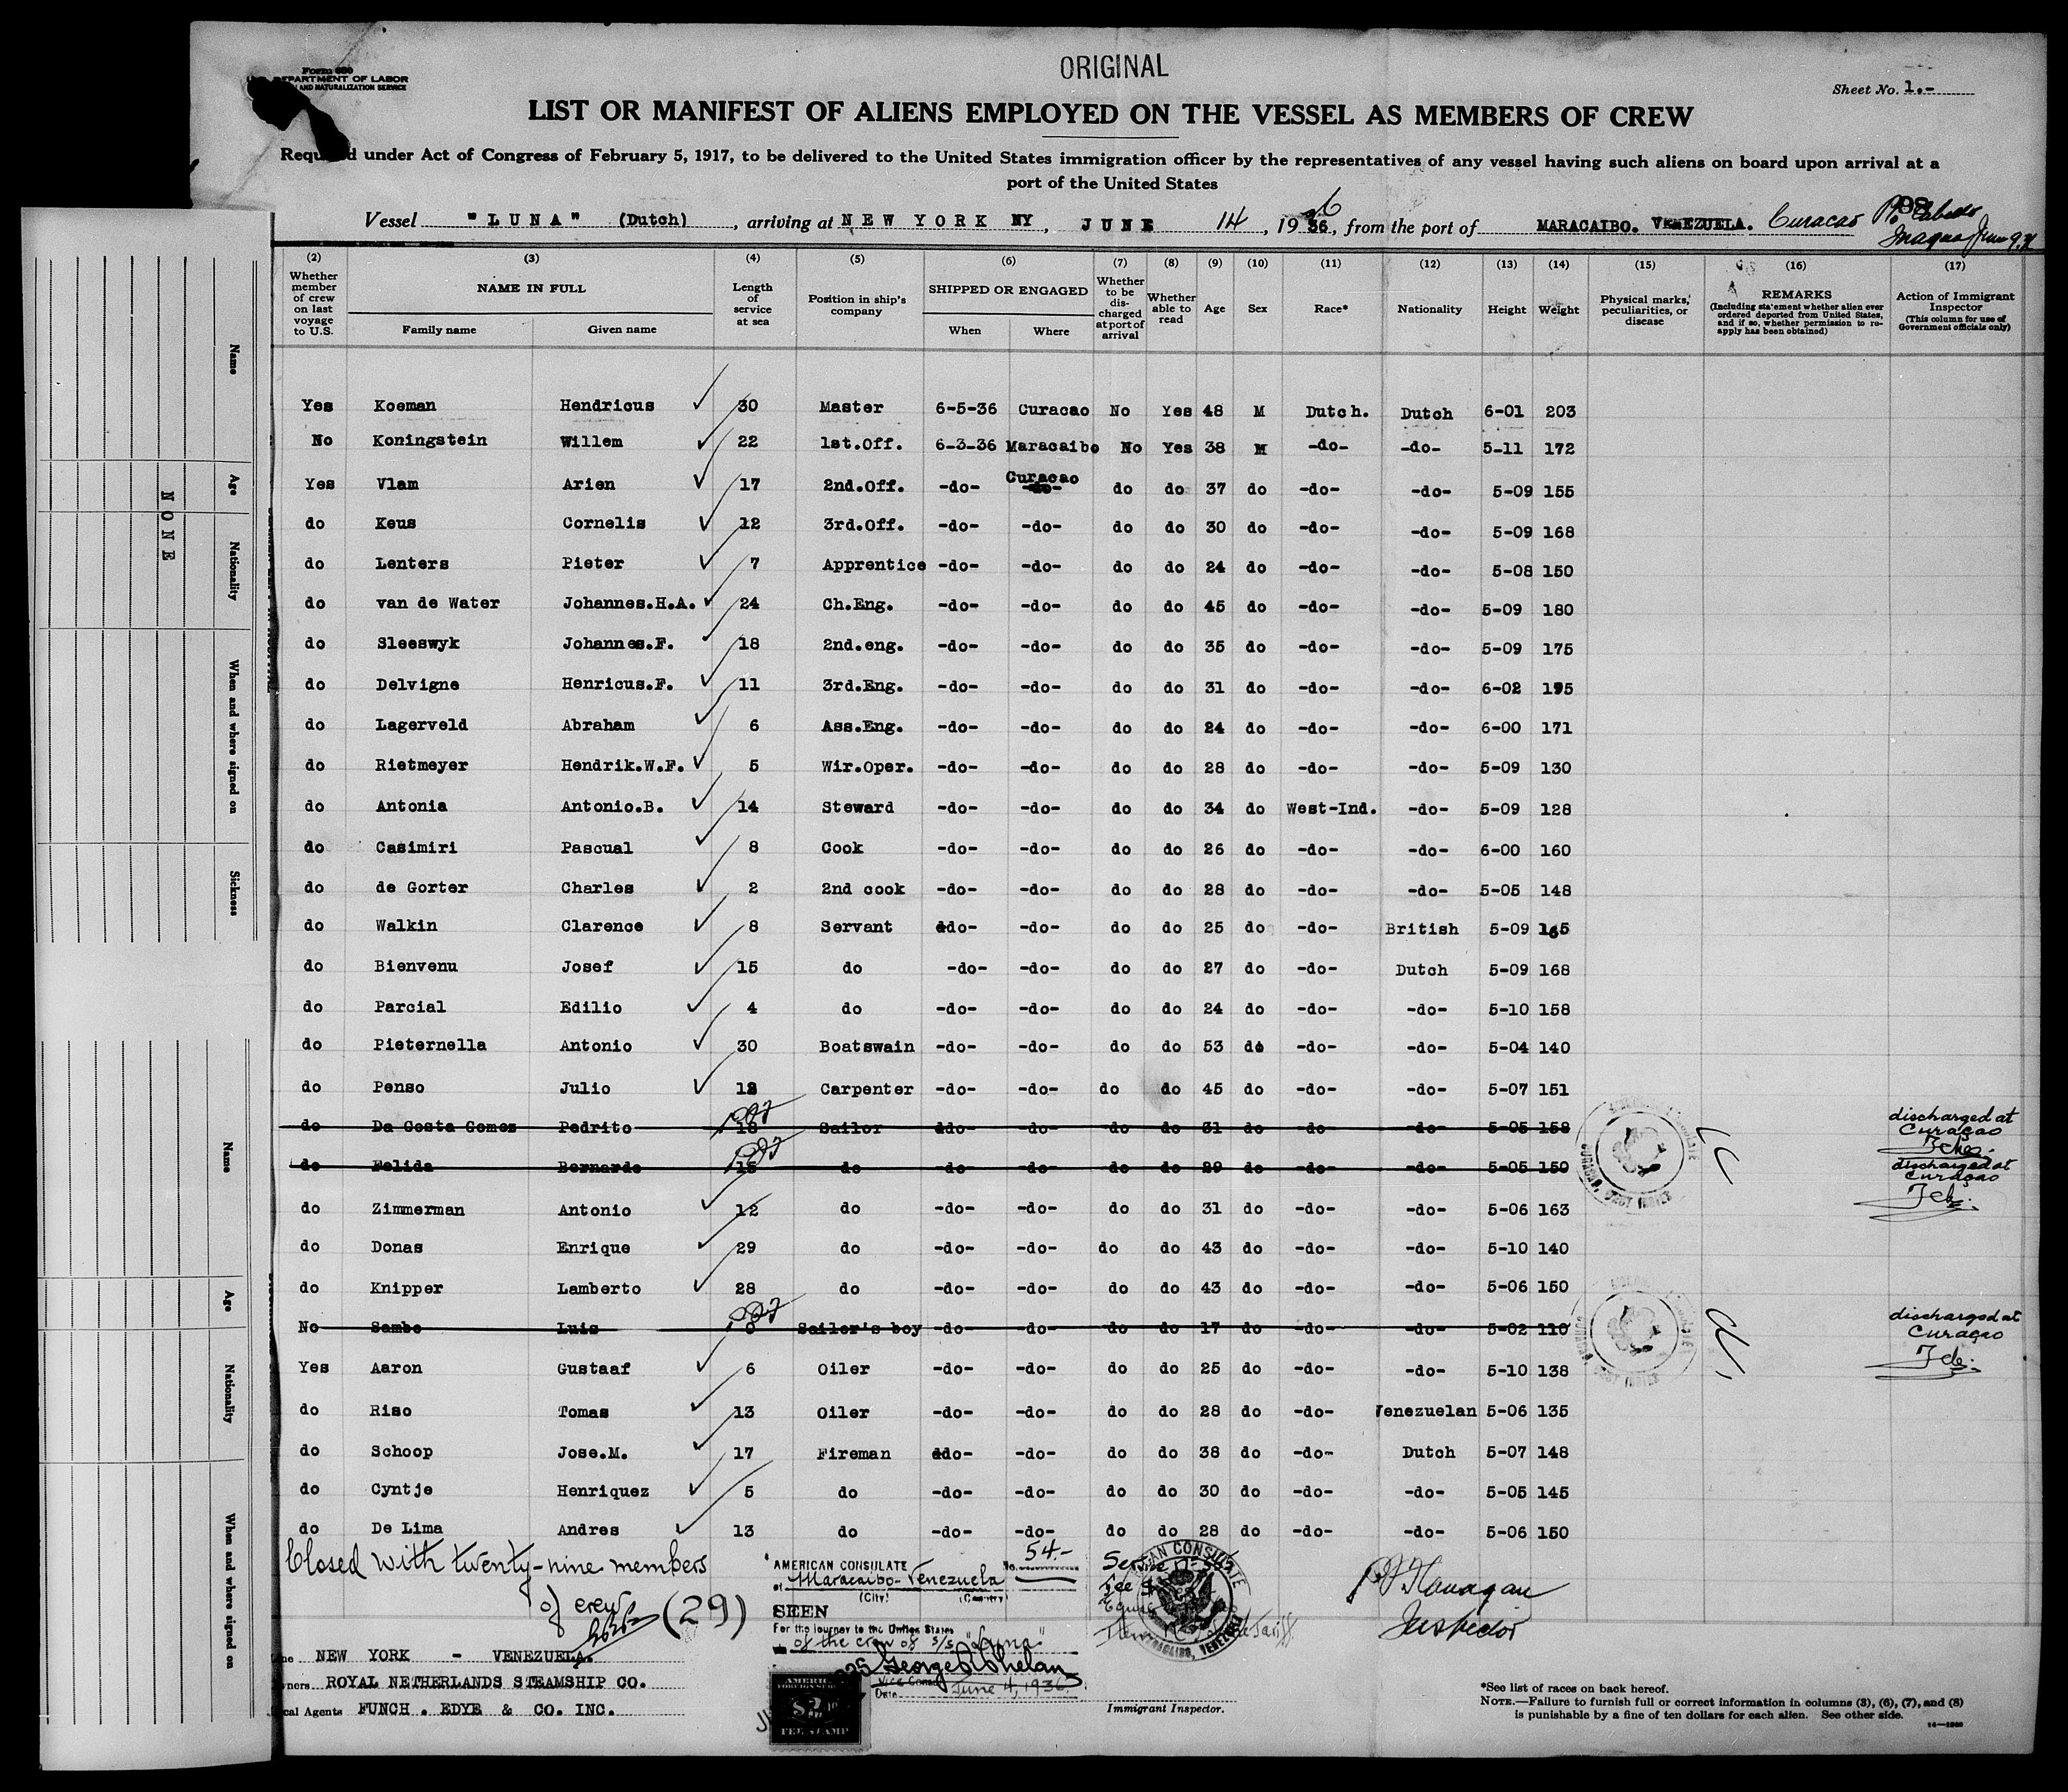 ORIGINAL
Form 680
DEPARTMENT OF LABOR
AND NATURALIZATION SERVICE
Sheet No. 1.-
LIST OR MANIFEST OF ALIENS EMPLOYED ON THE VESSEL AS MEMBERS OF CREW
Required under Act of Congress of February 5, 1917, to be delivered to the United States immigration officer by the representatives of any vessel having such aliens on board upon arrival at a
port of the United States
Vessel "LUNA" (Dutch), arriving at NEW YORK NY, JUNE 14, 1936, from the port of MARACAIBO. VENEZUELA. Curacao
(2) (3) (4) (5) (6) (7) (8) (9) (10) (11) (12) (13) (14) (15) (16) (17)
Whether member of crew on last voyage to U.S. NAME IN FULL Family name Given name Length of service at sea Position in ship's company SHIPPED OR ENGAGED When Where Whether to be discharged at port of arrival Whether able to read Age Sex Race* Nationality Height Weight Physical marks, peculiarities, or disease REMARKS (Including statement whether alien ever ordered deported from United States, and if so, whether permission to reapply has been obtained) Action of Immigrant Inspector (This column for use of Government officials only)
Yes Koeman Hendricus 30 Master 6-5-36 Curacao No Yes 48 M Dutch. Dutch 6-01 203
No Koningstein Willem 22 1st.Off. 6-3-36 Maracaibo No Yes 38 M -do- -do- 5-11 172
Yes Vlam Arien 17 2nd.Off. -do- Curacao do do 37 do -do- -do- 5-09 155
do Keus Cornelis 12 3rd.Off. -do- -do- do do 30 do -do- -do- 5-09 168
do Lenters Pieter 7 Apprentice -do- -do- do do 24 do -do- -do- 5-08 150
do van de Water Johannes.H.A. 24 Ch.Eng. -do- -do- do do 45 do -do- -do- 5-09 180
do Sleeswyk Johannes.F. 18 2nd.eng. -do- -do- do do 35 do -do- -do- 5-09 175
do Delvigne Henricus.F. 11 3rd.Eng. -do- -do- do do 31 do -do- -do- 6-02 195
do Lagerveld Abraham 6 Ass.Eng. -do- -do- do do 24 do -do- -do- 6-00 171
do Rietmeyer Hendrik.W.F. 5 Wir.Oper. -do- -do- do do 28 do -do- -do- 5-09 130
do Antonia Antonio.B. 14 Steward -do- -do- do do 34 do West-Ind. -do- 5-09 128
do Casimiri Pascual 8 Cook -do- -do- do do 26 do -do- -do- 6-00 160
do de Gorter Charles 2 2nd cook -do- -do- do do 28 do -do- -do- 5-05 148
do Walkin Clarence 8 Servant -do- -do- do do 25 do -do- British 5-09 165
do Bienvenu Josef 15 do -do- -do- do do 27 do -do- Dutch 5-09 168
do Parcial Edilio 4 do -do- -do- do do 24 do -do- -do- 5-10 158
do Pieternella Antonio 30 Boatswain -do- -do- do do 53 do -do- -do- 5-04 140
do Penso Julio 12 Carpenter -do- -do- do do 45 do -do- -do- 5-07 151
do Da Costa Gomez Pedrito 18 Sailor -do- -do- do do 31 do -do- -do- 5-05 158 discharged at Curaçao
do Felida Bernardo 15 do -do- -do- do do 29 do -do- -do- 5-05 150 discharged at Curaçao
do Zimmerman Antonio 12 do -do- -do- do do 31 do -do- -do- 5-06 163
do Donas Enrique 29 do -do- -do- do do 43 do -do- -do- 5-10 140
do Knipper Lamberto 28 do -do- -do- do do 43 do -do- -do- 5-06 150
No Sambo Luis 0 Sailer's boy -do- -do- do do 17 do -do- -do- 5-02 110 discharged at Curaçao
Yes Aaron Gustaaf 6 Oiler -do- -do- do do 25 do -do- -do- 5-10 138
do Riso Tomas 13 Oiler -do- -do- do do 28 do -do- Venezuelan 5-06 135
do Schoop Jose.M. 17 Fireman -do- -do- do do 38 do -do- Dutch 5-07 148
do Cyntje Henriquez 5 do -do- -do- do do 30 do -do- -do- 5-05 145
do De Lima Andres 13 do -do- -do- do do 28 do -do- -do- 5-06 150
Closed with twenty-nine members
of crew (29)
AMERICAN CONSULATE No. 54.-
at Maracaibo-Venezuela
(City) (Country)
SEEN
For the journey to the United States
of the crew of s/s "Luna"
George Whelan
Vice Consul
Date June 4, 1936
Inspector
NEW YORK - VENEZUELA.
Owners ROYAL NETHERLANDS STEAMSHIP CO.
Local Agents FUNCH . EDYE & CO. INC.
Immigrant Inspector.
*See list of races on back hereof.
NOTE.—Failure to furnish full or correct information in columns (3), (6), (7), and (8)
is punishable by a fine of ten dollars for each alien. See other side.
Name
Age
Nationality
When and where signed on
Sickness
NONE
Name
Age
Nationality
When and where signed on